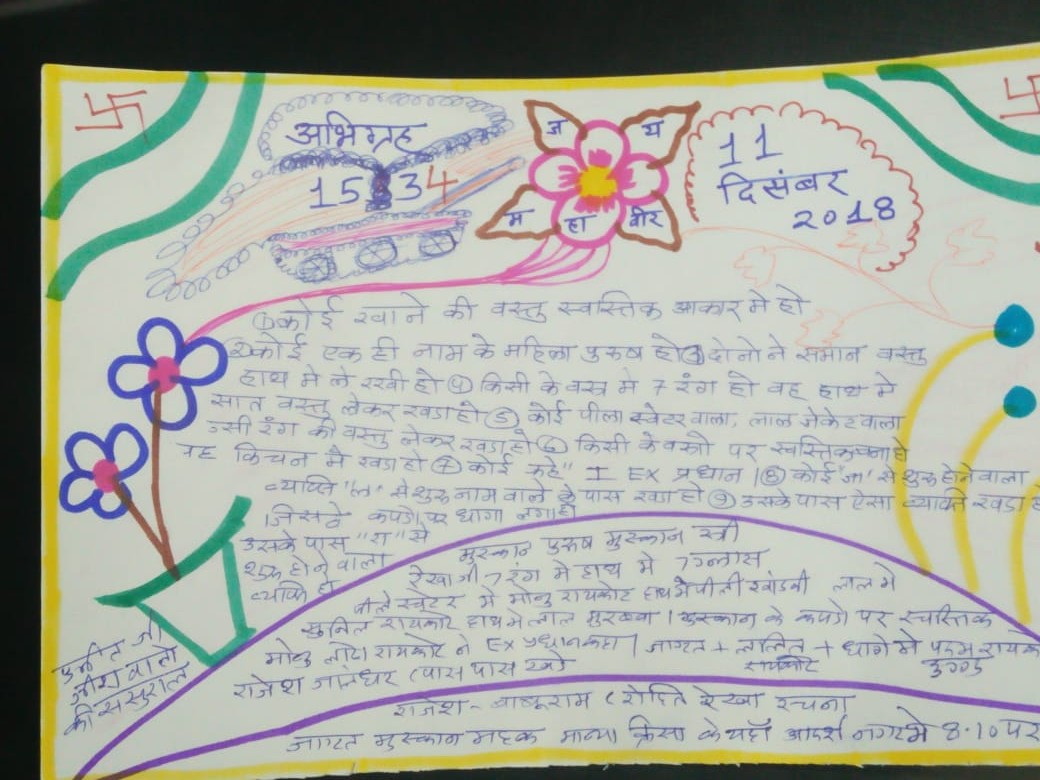 अभिग्रह
15334
ज य
म हा वीर
11
दिसंबर
2018
①कोई खाने की वस्तु स्वस्तिक आकार मे हो
②कोई एक ही नाम के महिला पुरुष हो ③ दोनो ने समान वस्तु
हाथ मे ले रखी हो ④ किसी के वस्त्र मे 7 रंग हो वह हाथ मे
सात वस्तु लेकर खडा हो ⑤ कोई पीला स्वेटर वाला, लाल जेकेट वाला
उसी रंग की वस्तु लेकर खडा हो ⑥ किसी के वस्त्रो पर स्वस्तिक बना हो
वह किचन मे खडा हो ⑦ कोई कहे" I EX प्रधान । ⑧ कोई "ज" से शुरू होने वाला
व्यक्ति "ल" से शुरू नाम वाले के पास खडा हो ⑨ उसके पास ऐसा व्यक्ति खडा हो
जिसके कपडो पर धागा लगा हो
उसके पास "रा" से
शुरू होने वाला
व्यक्ति हो
मुस्कान पुरुष मुस्कान स्त्री
रेखा जी 7 रंग मे हाथ मे 7 ग्लास
पीले स्वेटर मे मोनु रायकोट हाथ मे पीली लाल मे
सुनिल रायकोट हाथ मे लाल मुरब्बा । मुस्कान के कपडो पर स्वस्तिक
मोनु रायकोट ने EX प्रधान कहा | जागृत + ललित + धागे मे पदम
रायकोट
राजेश जालंधर (पास पास खडे
पुनीत जी
जीरा वालो
की ससुराल
राजेश - बाबुराम ( रेखा रचना
जागृत मुस्कान महक मान्या के यहाँ आदर्श नगर मे 8.10 पर